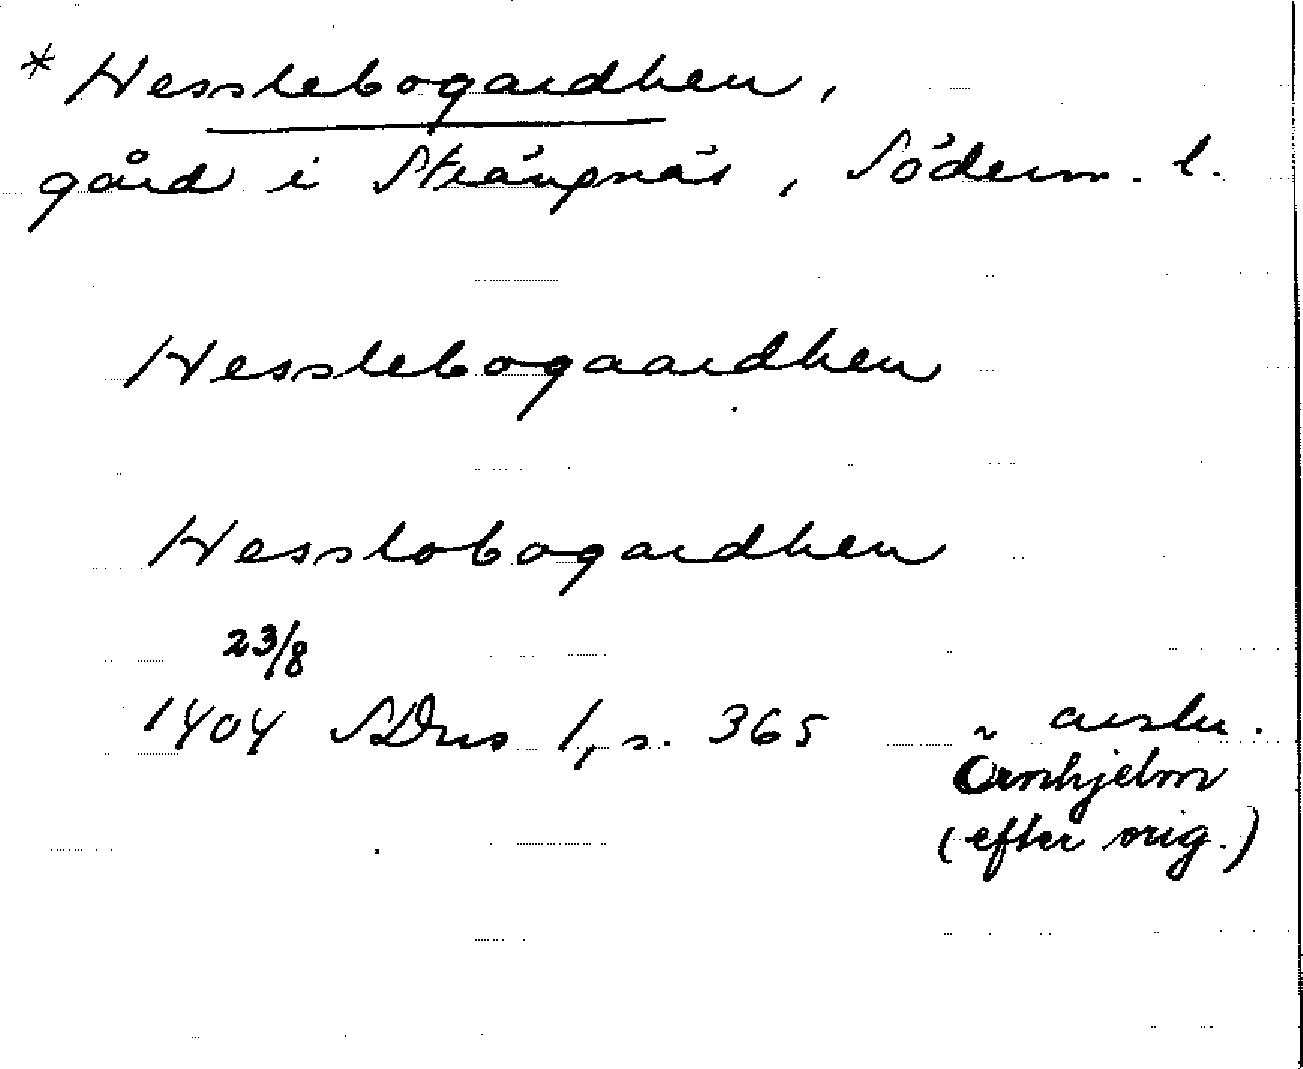 * Hesslebogardhen,
gård i Strängnäs, Söderm. l.
Hesslebogaardhen
Hesslobogardhen
23/8
1404 SDns 1, s. 365 avskr.
Örnhjelm
(efter orig.)